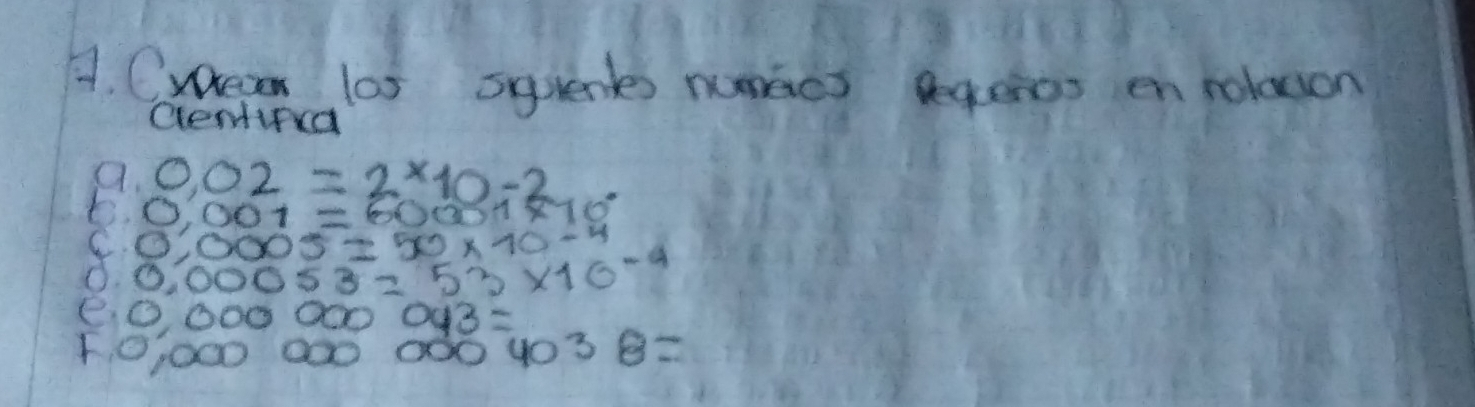 7. Expresar los siguientes numéros pequeños en notacion
Cientifica
a. 0,02 = 2 x 10 -2
b. 0,001 = x 10
c. 0,0005 = 50 x 10 -4
d. 0,00053 = 53 x 10 -4
e. 0,000 000 043 =
f. 0,000 000 000 403 8 =